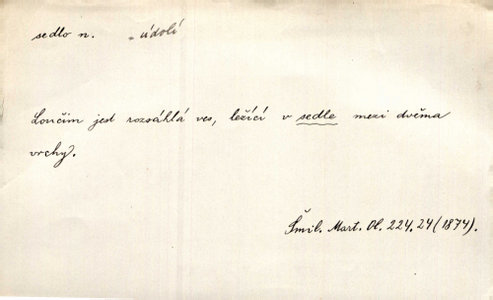 sedlo n. „ údolí
Loučim jest rozsáhlá ves, ležící v sedle mezi dvěma
vrchy.
Šmil. Mart. Ol. 224.24 (1874).